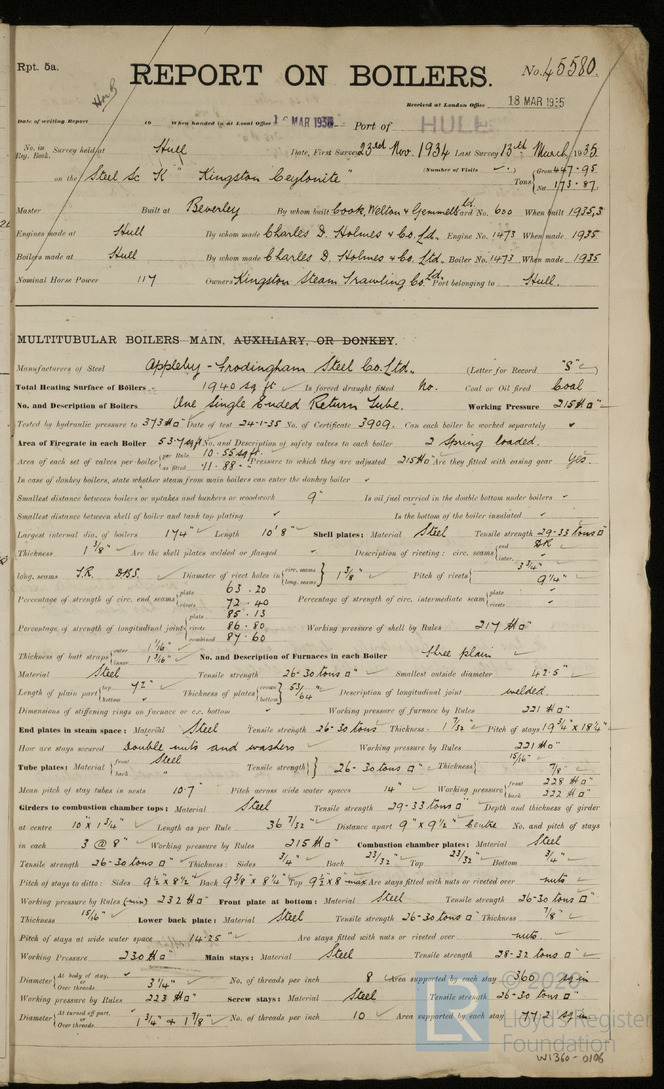 Rpt. 5a.
REPORT ON BOILERS.
No. 45580.
Received at London Office 18 MAR 1935
Date of writing Report 19 When handed in at Local Office MAR 193 Port of HULL
No. in Reg. Book. Survey held at Hull Date, First Survey 23rd Nov. 1934 Last Survey 13th March 1935
on the Steel Sc K "Kingston Ceylonite" (Number of Visits ) Tons { Gross 447.95 Net 173.87
Master Built at Beverley By whom built Cook, Welton & Gemmell Ltd. Yard No. 600 When built 1935,3
Engines made at Hull By whom made Charles D. Holmes & Co. Ltd. Engine No. 1473 When made 1935
Boilers made at Hull By whom made Charles D. Holmes & Co. Ltd. Boiler No. 1473 When made 1935
Nominal Horse Power 117 Owners Kingston Steam Trawling Co. Ltd. Port belonging to Hull.
MULTITUBULAR BOILERS MAIN, AUXILIARY, OR DONKEY.
Manufacturers of Steel Appleby-Frodingham Steel Co. Ltd. (Letter for Record "S")
Total Heating Surface of Boilers 1940 sq ft Is forced draught fitted No. Coal or Oil fired Coal
No. and Description of Boilers One Single Ended Return Tube. Working Pressure 215 #□"
Tested by hydraulic pressure to 373 #□" Date of test 24-1-35 No. of Certificate 3909. Can each boiler be worked separately
Area of Firegrate in each Boiler 53.7 sq ft No. and Description of safety valves to each boiler 2 Spring loaded.
Area of each set of valves per boiler { per Rule 10.55 sq ft. as fitted 11.88 Pressure to which they are adjusted 215 #□" Are they fitted with easing gear Yes.
In case of donkey boilers, state whether steam from main boilers can enter the donkey boiler
Smallest distance between boilers or uptakes and bunkers or woodwork 9" Is oil fuel carried in the double bottom under boilers
Smallest distance between shell of boiler and tank top plating Is the bottom of the boiler insulated
Largest internal dia. of boilers 174" Length 10' 8" Shell plates: Material Steel Tensile strength 29-33 tons □"
Thickness 1 3/8" Are the shell plates welded or flanged Description of riveting: circ. seams { end DR inter.
long. seams T.R. D.B.S. Diameter of rivet holes in { circ. seams long. seams } 1 3/8" Pitch of rivets { 3 3/4" 9 1/4"
Percentage of strength of circ. end seams { plate 63.20 rivets 72.40 Percentage of strength of circ. intermediate seam { plate rivets
Percentage of strength of longitudinal joint { plate 85.13 rivets 86.80 combined 87.60 Working pressure of shell by Rules 217 #□"
Thickness of butt straps { outer 1 1/16" inner 1 3/16" No. and Description of Furnaces in each Boiler three plain
Material Steel Tensile strength 26-30 tons □" Smallest outside diameter 42.5"
Length of plain part { top 72" bottom Thickness of plates { crown bottom } 53/64" Description of longitudinal joint welded.
Dimensions of stiffening rings on furnace or c.c. bottom Working pressure of furnace by Rules 221 #□"
End plates in steam space: Material Steel Tensile strength 26-30 tons Thickness 1 7/32" Pitch of stays 19 3/4" x 18 1/4"
How are stays secured Double nuts and washers Working pressure by Rules 221 #□"
Tube plates: Material { front Steel back " Tensile strength { } 26-30 tons □" Thickness { 15/16" 7/8"
Mean pitch of stay tubes in nests 10.7" Pitch across wide water spaces 14" Working pressure { front 228 #□" back 222 #□"
Girders to combustion chamber tops: Material Steel Tensile strength 29-33 tons □" Depth and thickness of girder
at centre 10" x 1 3/4" Length as per Rule 36 7/32" Distance apart 9" x 9 1/2" Centre No. and pitch of stays
in each 3 @ 8" Working pressure by Rules 215 #□" Combustion chamber plates: Material Steel
Tensile strength 26-30 tons □" Thickness: Sides 3/4" Back 23/32" Top 23/32" Bottom 3/4"
Pitch of stays to ditto: Sides 9 1/2" x 8 1/2" Back 9 3/8" x 8 1/4" Top 9 1/2 x 8" max Are stays fitted with nuts or riveted over nuts
Working pressure by Rules (min) 232 #□" Front plate at bottom: Material Steel Tensile strength 26-30 tons □"
Thickness 15/16" Lower back plate: Material Steel Tensile strength 26-30 tons □" Thickness 7/8"
Pitch of stays at wide water space 14.25" Are stays fitted with nuts or riveted over nuts.
Working Pressure 230 #□" Main stays: Material Steel Tensile strength 28-32 tons □"
Diameter { At body of stay, or Over threads 3 1/4" No. of threads per inch 8 Area supported by each stay 360 sq in
Working pressure by Rules 223 #□" Screw stays: Material Steel Tensile strength 26-30 tons □"
Diameter { At turned off part, or Over threads 1 3/4" & 1 7/8" No. of threads per inch 10 Area supported by each stay 77.2 sq in
© 2020
LR Lloyd's Register
Foundation
W1360-0106